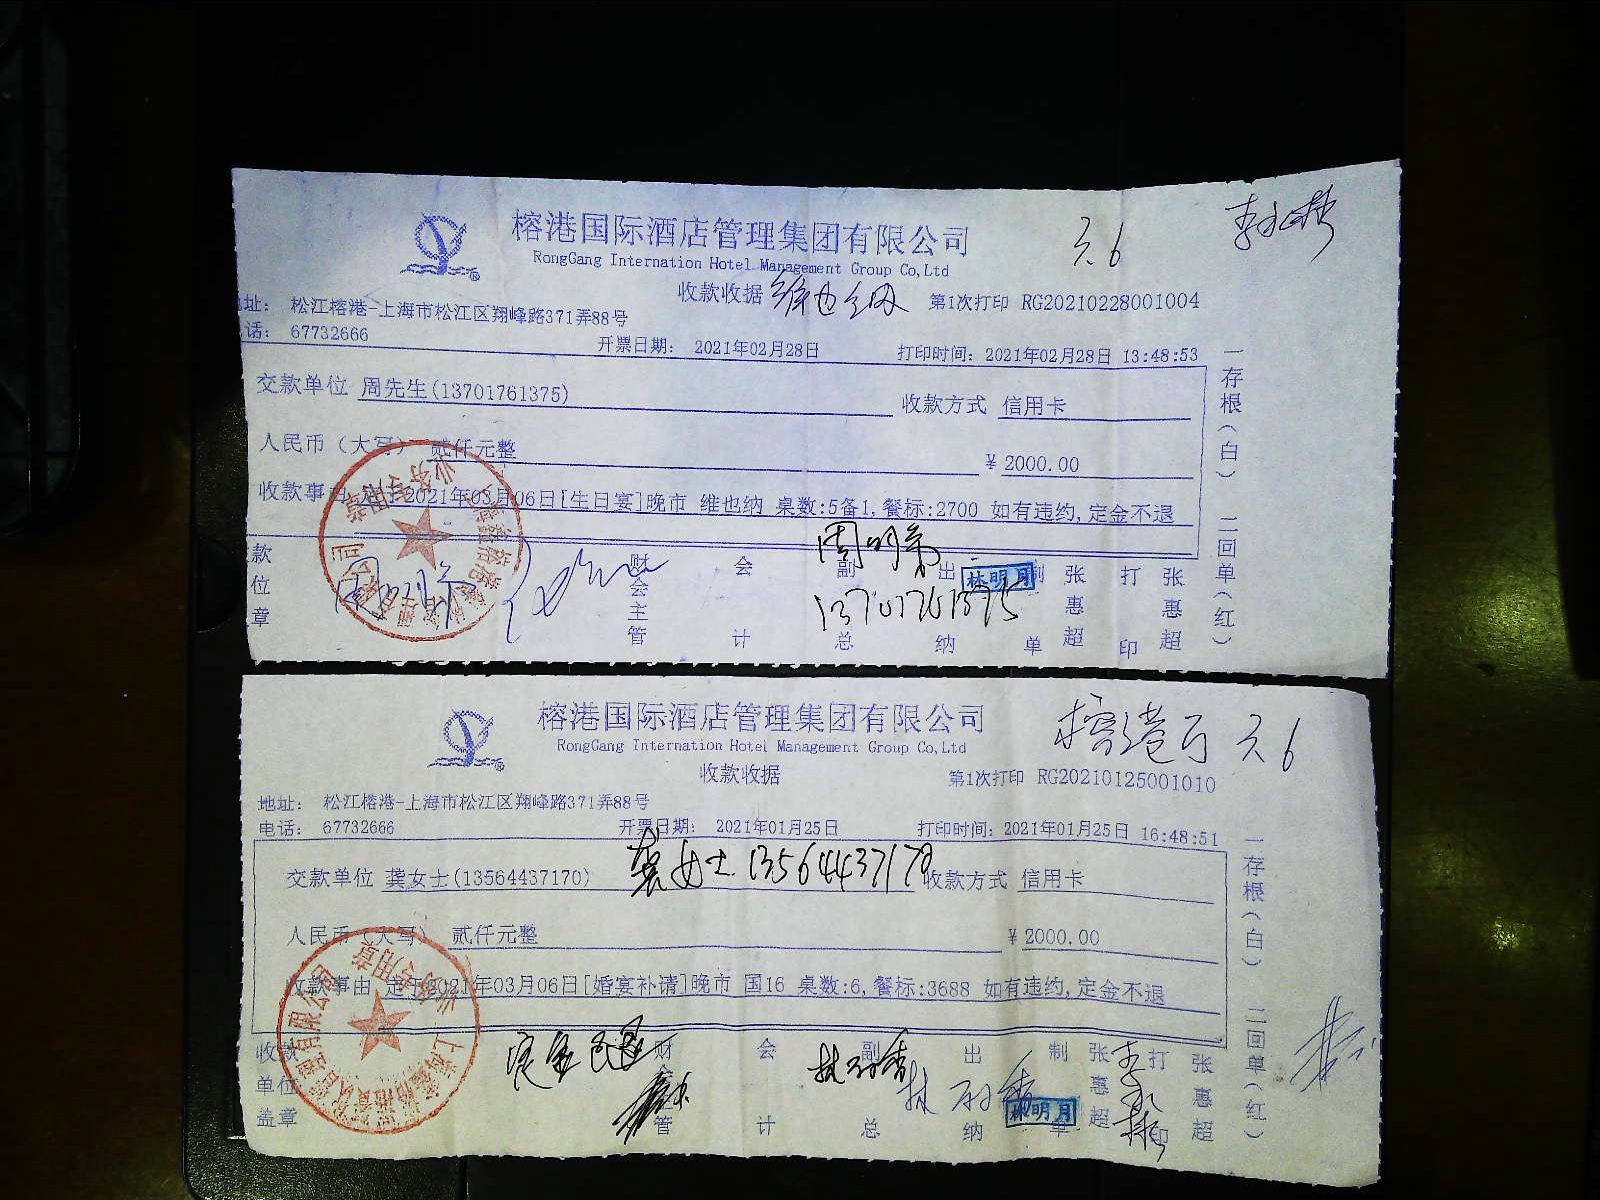 榕港国际酒店管理集团有限公司
3.6
RongGang Internation Hotel Management Group Co,Ltd
收款收据 维也纳 第1次打印 RG20210228001004
址: 松江榕港-上海市松江区翔峰路371弄88号
话: 67732666
开票日期: 2021年02月28日 打印时间: 2021年02月28日 13:48:53
交款单位 周先生(13701761375) 收款方式 信用卡
人民币(大写) 贰仟元整 ¥2000.00
收款事由 2021年03月06日[生日宴]晚市 维也纳 桌数:5备1,餐标:2700 如有违约,定金不退
款位章 财会主管 会计 副总 出纳 制单 张惠超 打印 张惠超
13701761375
林明月
一存根(白) 二回单(红)
榕港国际酒店管理集团有限公司
榕港厅 3.6
RongGang Internation Hotel Management Group Co,Ltd
收款收据 第1次打印 RG20210125001010
地址: 松江榕港-上海市松江区翔峰路371弄88号
电话: 67732666
开票日期: 2021年01月25日 打印时间: 2021年01月25日 16:48:51
交款单位 龚女士(13564437170) 龚女士 13564437170 收款方式 信用卡
人民币(大写) 贰仟元整 ¥2000.00
收款事由 定于2021年03月06日[婚宴补请]晚市 国16 桌数:6,餐标:3688 如有违约,定金不退
收款单位盖章 财会主管 会计 副总 出纳 制单 张惠超 打印 张惠超
林明月
一存根(白) 二回单(红)